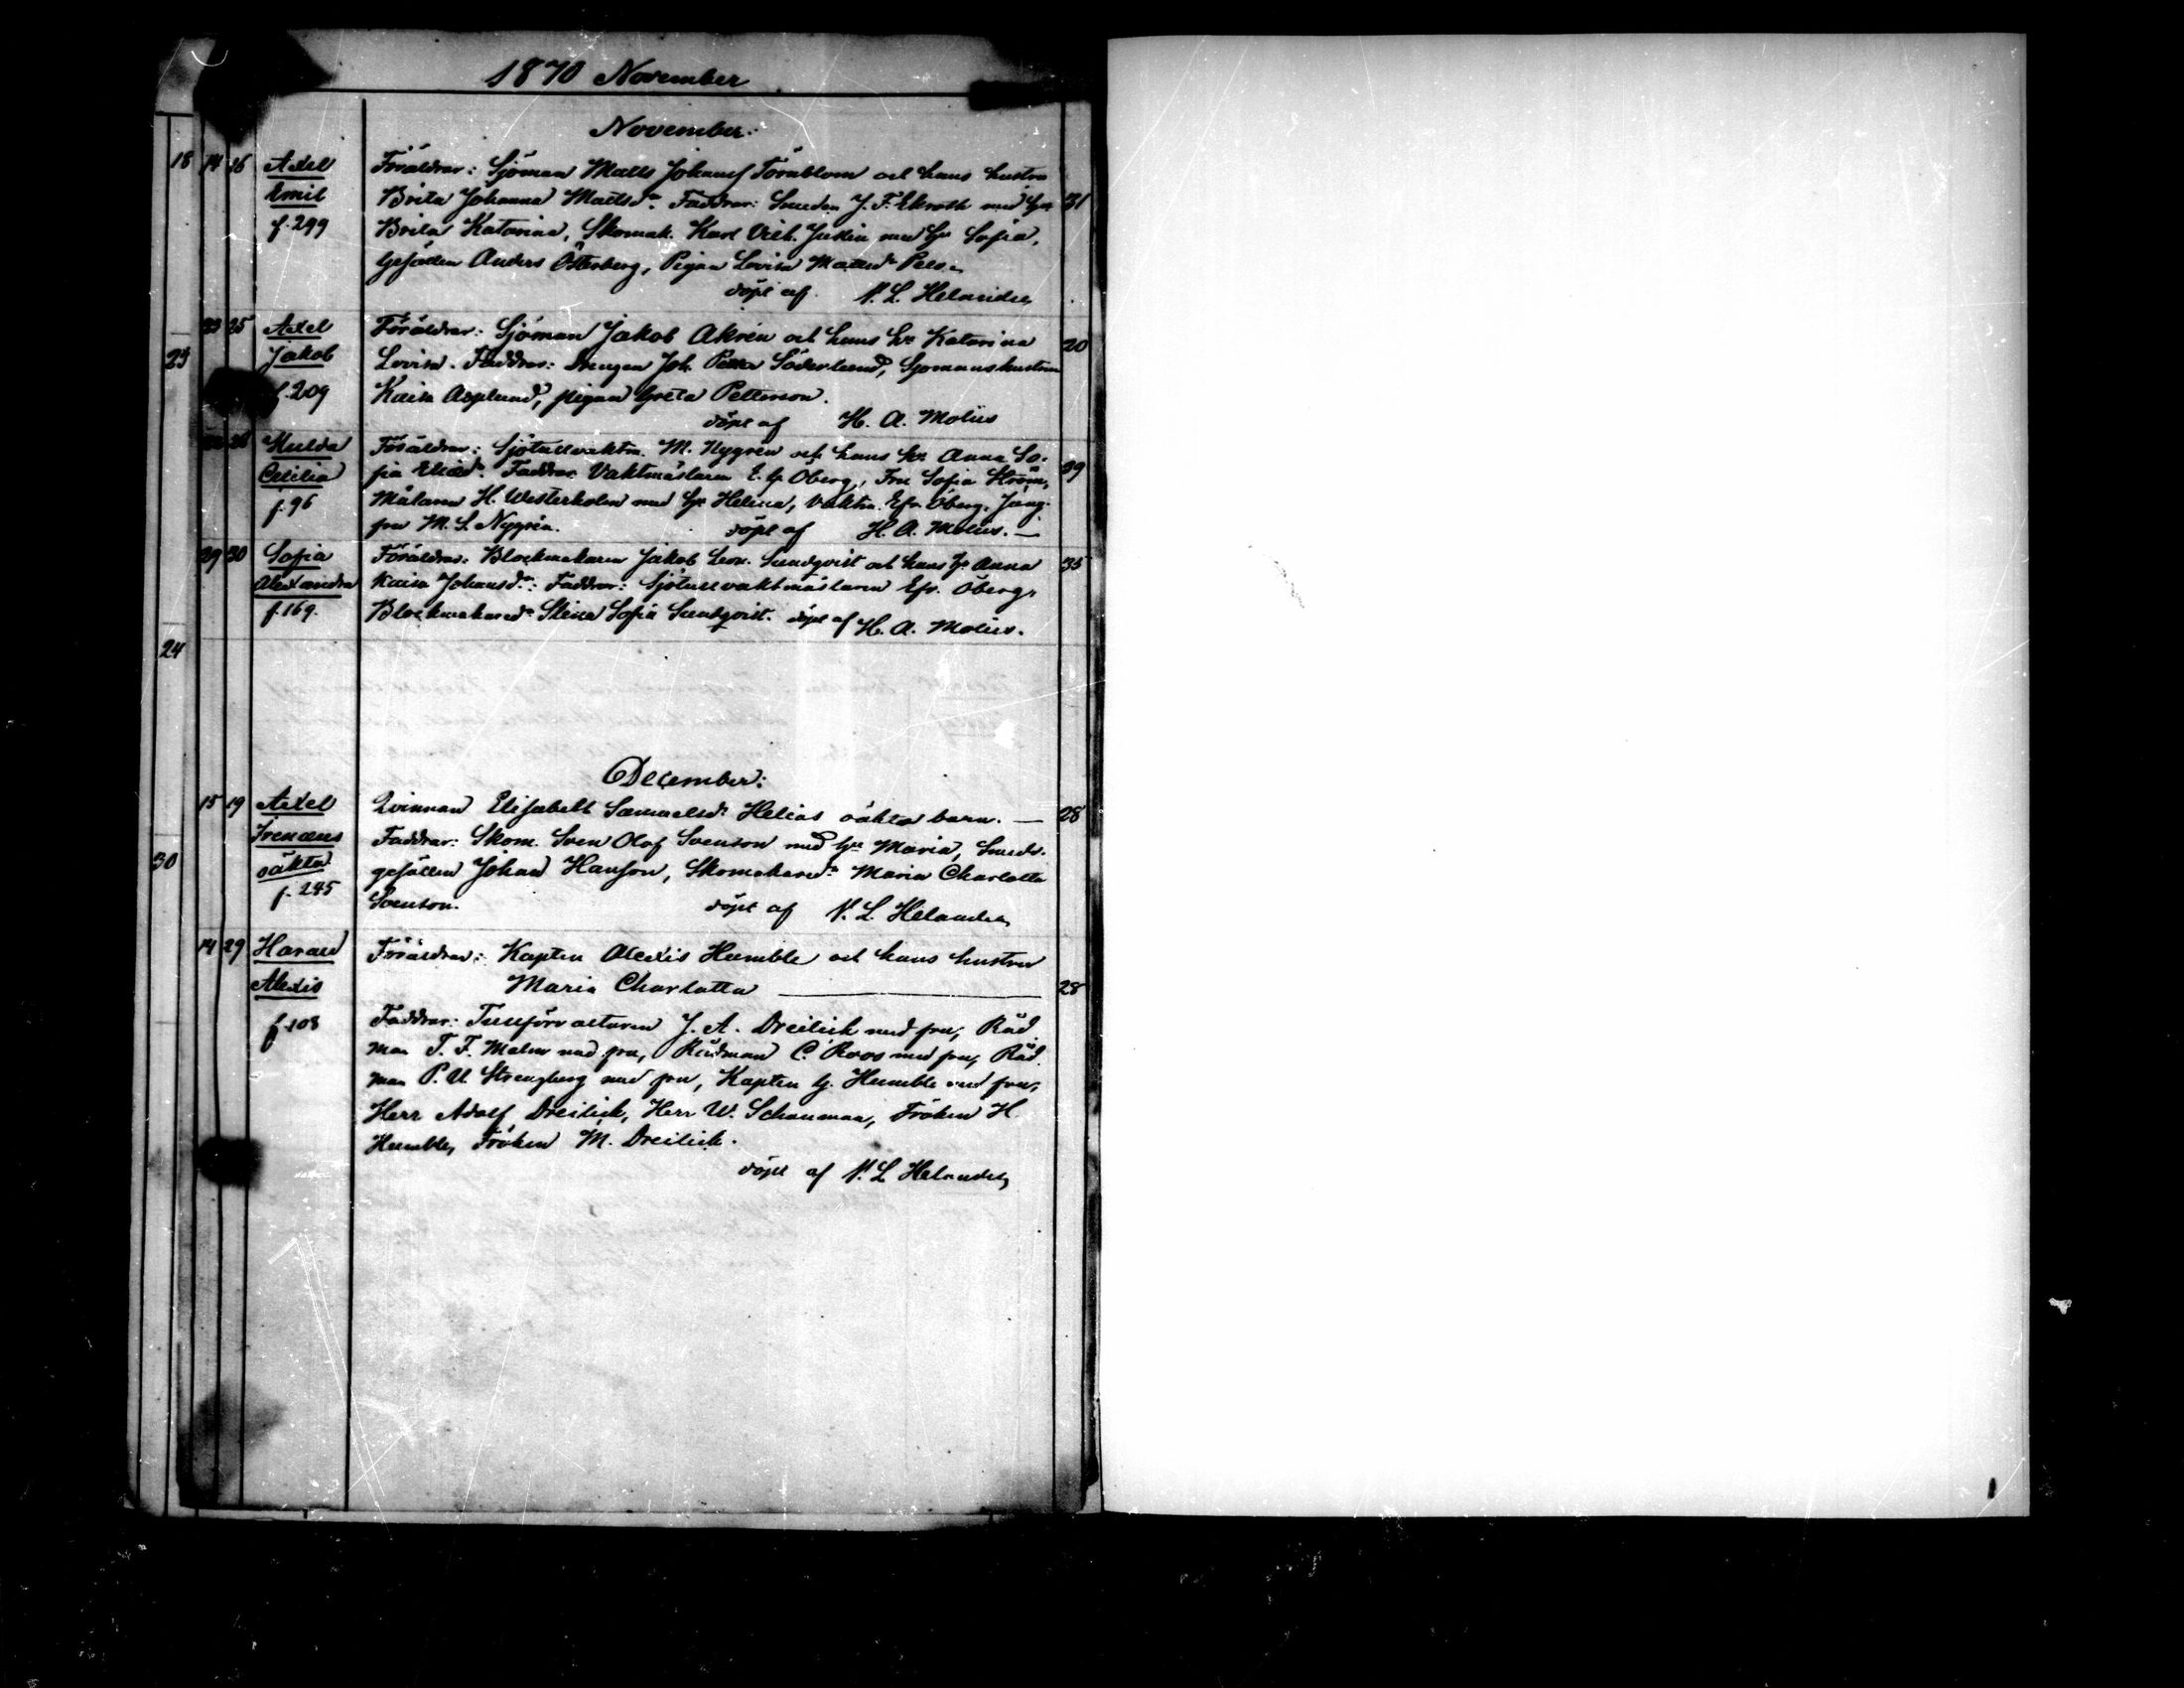 1870 November
November:
18 14 26 Axel Föräldrar: Sjöman Matts Johansf Törnblom och hans hustru
Emil Brita Johanna Mattsdr. Faddrar: Smeden J. F. Ekroth med hu 31
f. 299 Brita Katarina, Skomak. Karl Vilh. Juslin med hu Sofia,
Gesällen Anders Österberg, Pigan Lovisa Mattsdr
döpt af N. L. Helander
23 25 Axel Föräldrar: Sjöman Jakob Åkrén och hans hu Katarina
23 Jakob Lovisa. Faddrar: Drengen Joh. Petter Söderlund, Sjömanshustrun 20
f. 209 Kaisa Asplund, pigan Greta Petterson.
döpt af H. A. Molüs
26 Hulda Föräldrar: Sjötullvaktm. M. Nygrén och hans hu Anna So-
Cecilia fia Eliædr. Faddrar: Vaktmästaren E. G. Öberg, Fru Sofia Ström, 39
f. 96 Målaren H. Westerholm med hu Helena, Vaktm. Efr. Öberg, Jung-
fru M. S. Nygrén. döpt af H. A. Molüs. —
29 30 Sofia Föräldrar: Blockmakaren Jakob Leon. Sundqvist och hans hu Anna 35
Alexandra Kaisa Johansdr: Faddrar: Sjötullvaktmästaren Efr. Öberg,
f. 169. Blockmakaredr Stina Sofia Sundqvist. döpt af H. A. Molüs.
24
December:
15 19 Axel Qvinnan Elisabeth Samuelsdr Helias oäkta barn. — 28
Irenæus Faddrar: Skom. Sven Olof Svenson med hu Maria, Smeds-
30 oäkta gesällen Johan Hanson, Skomakaredr Maria Charlotta
f. 245 Svenson. döpt af N. L. Helander
14 29 Harald Föräldrar: Kapten Alexis Humble och hans hustru
Alexis Maria Charlotta — 28
f. 108 Faddrar: Tullförvaltaren J. A. Dreilick med fru, Råd-
man T. F. Malm med fru, Rådman C. Roos med fru, Råd-
man P. U. Strengberg med fru, Kapten G. Humble med fru,
Herr Adolf Dreilick, Herr W. Schauman, Fröken H.
Humble, Fröken M. Dreilick.
döpt af N. L. Helander